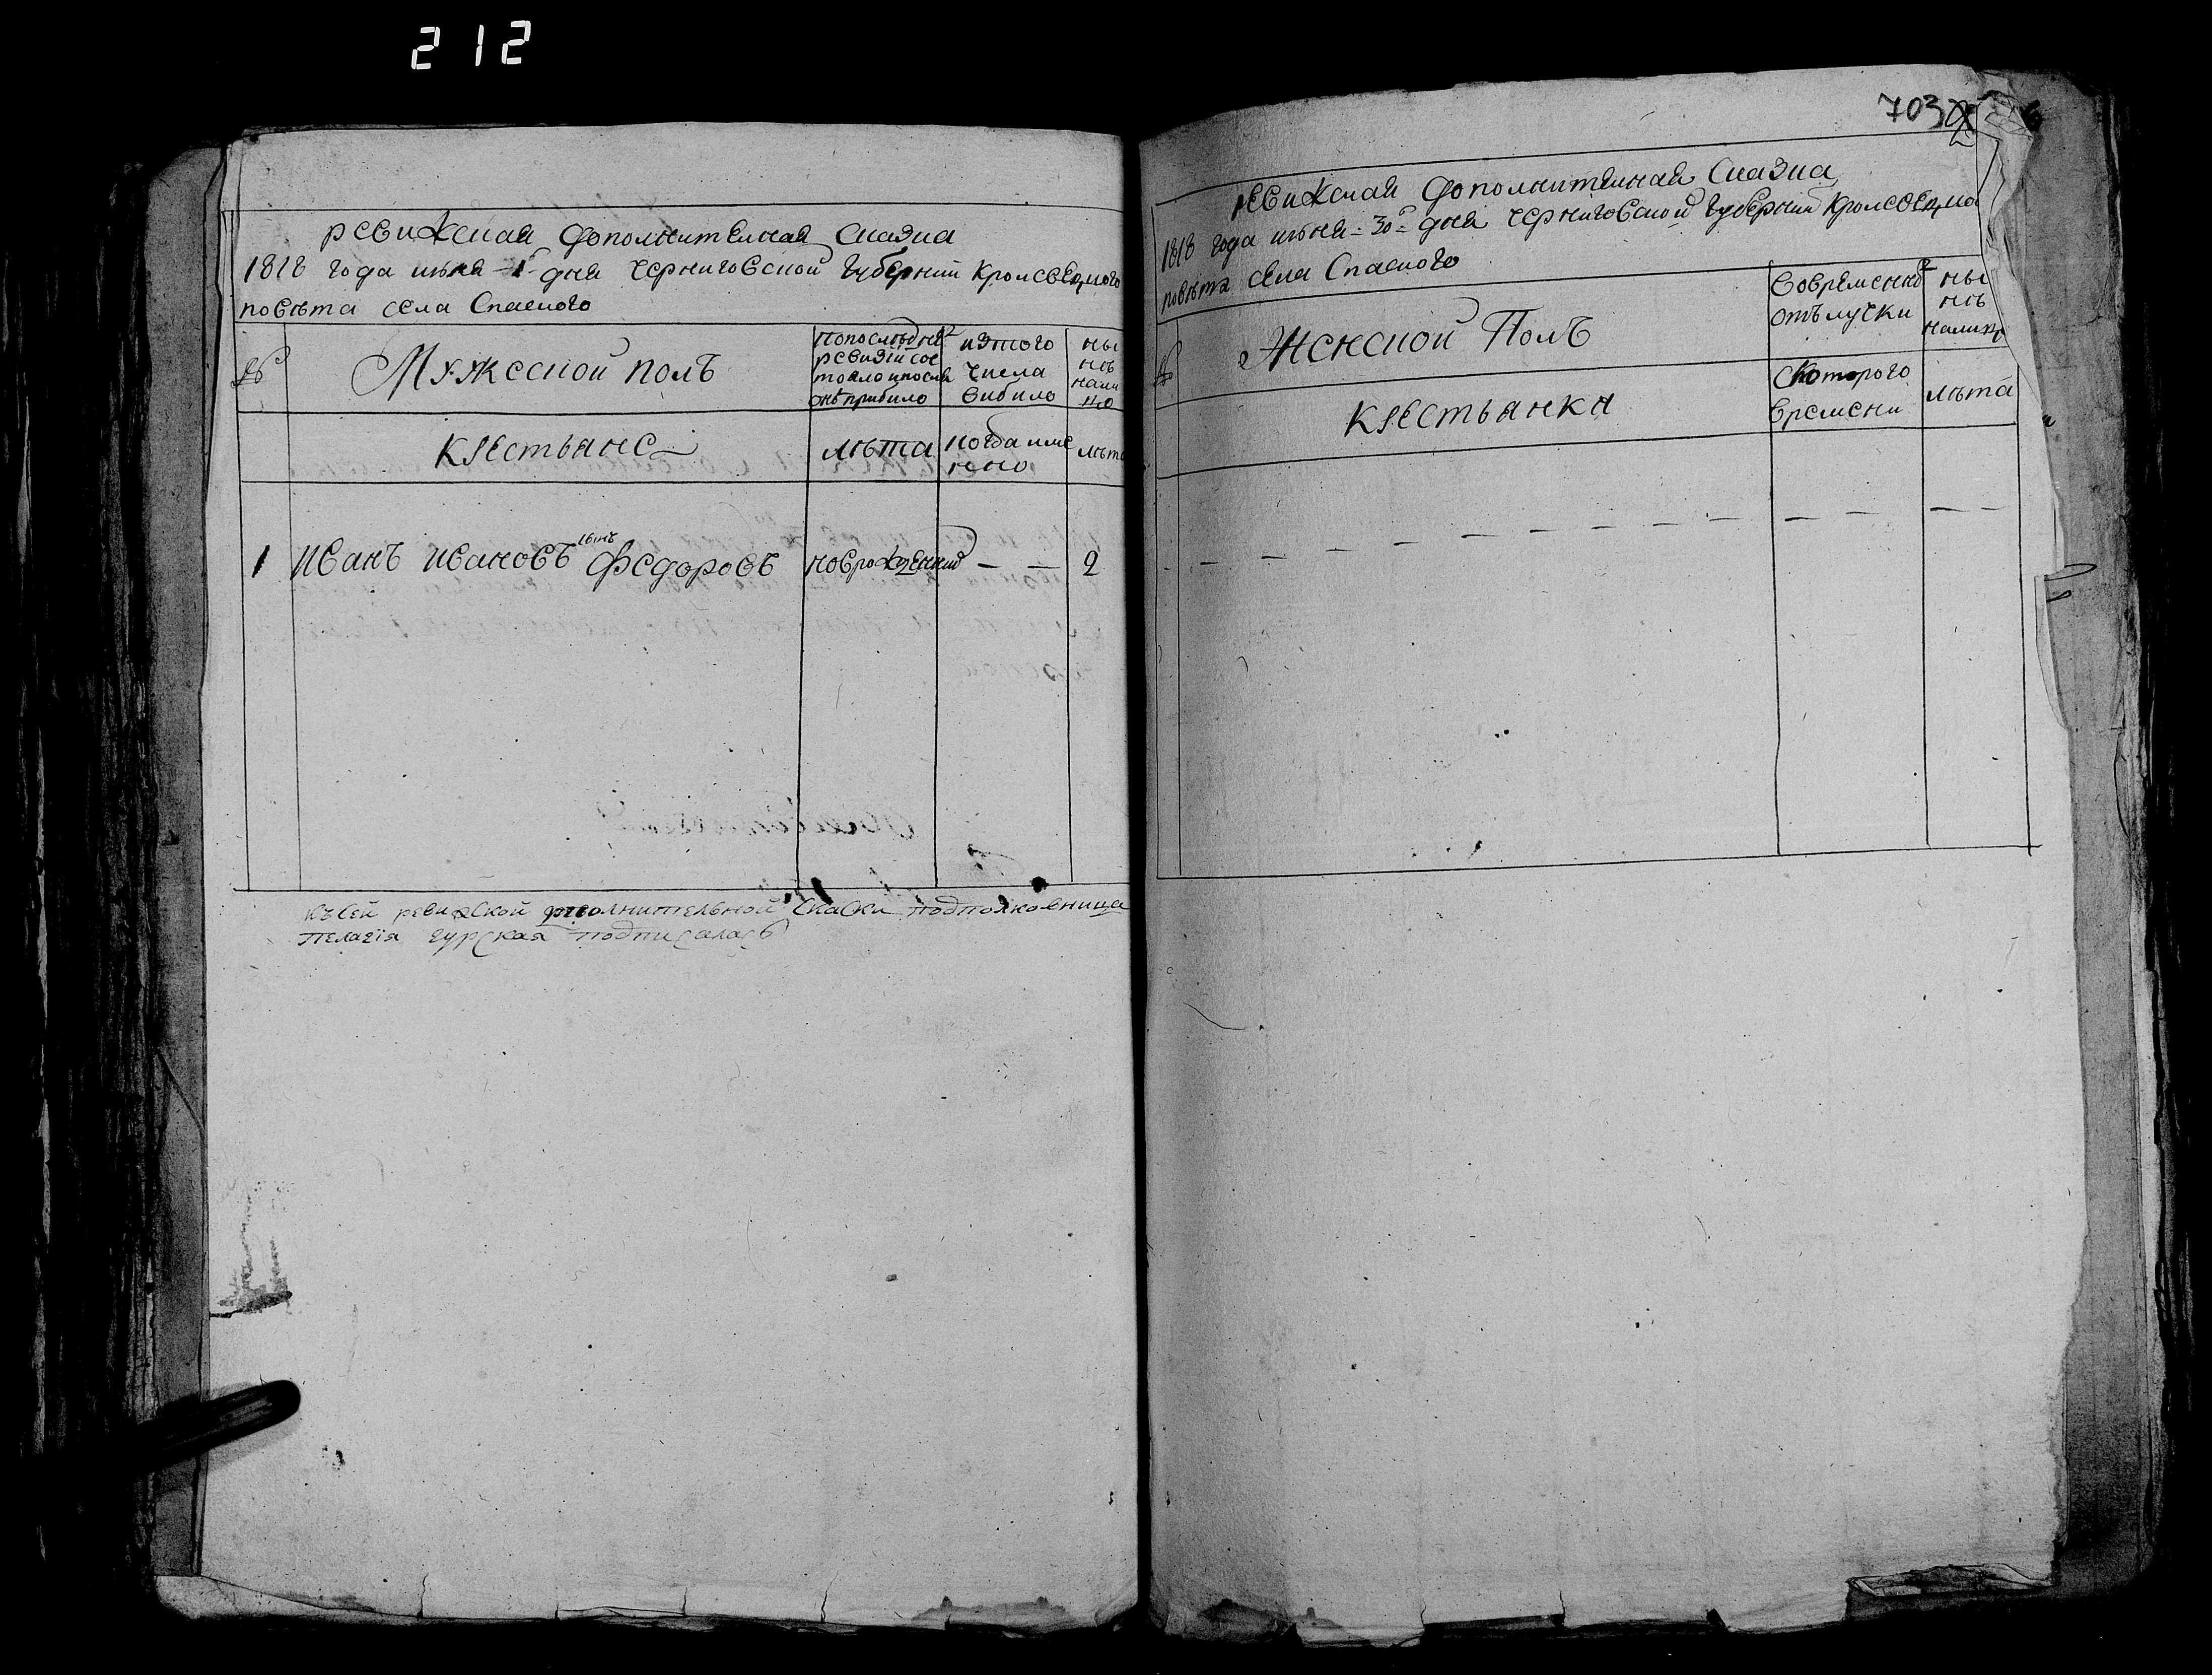 212
ревижская дополнителная сказка
1818 года июня 1 дня черниговской губернии кролевецкого
повѣта села Спаского
№
Мужеской полъ
Попослѣдней
ревизіи сос
тояло и посля
онѣ прибило
изтого
числа
вибило
ны
нѣ
нали
цо
крестьяне
лѣта
когда име
нно
лѣта
1 Иванъ Ивановъ сынъ Федоровъ новрожденний — — 2
Къ сей ревижской дополнительной скаски подполковница
Пелагія гурская подписалась
703
ревижская дополнителная сказка
1818 года июня 30 дня черниговской губернии кролевецко
повѣта села Спаского
№
Женской Полъ
вовременной
отълучки
ны
нѣ
налицо
крестьянки
Скоторого
времени
лѣта